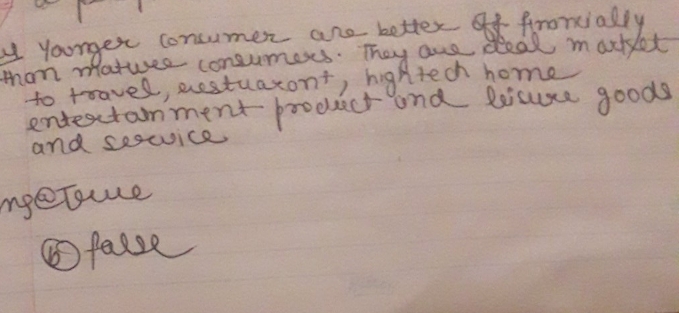 Younger consumer are better off financially
than mature consumers. They are deal market
to travel, restuarant, hightech home
entertainment product and leisure goods
and service
ng @ True
ⓑ false